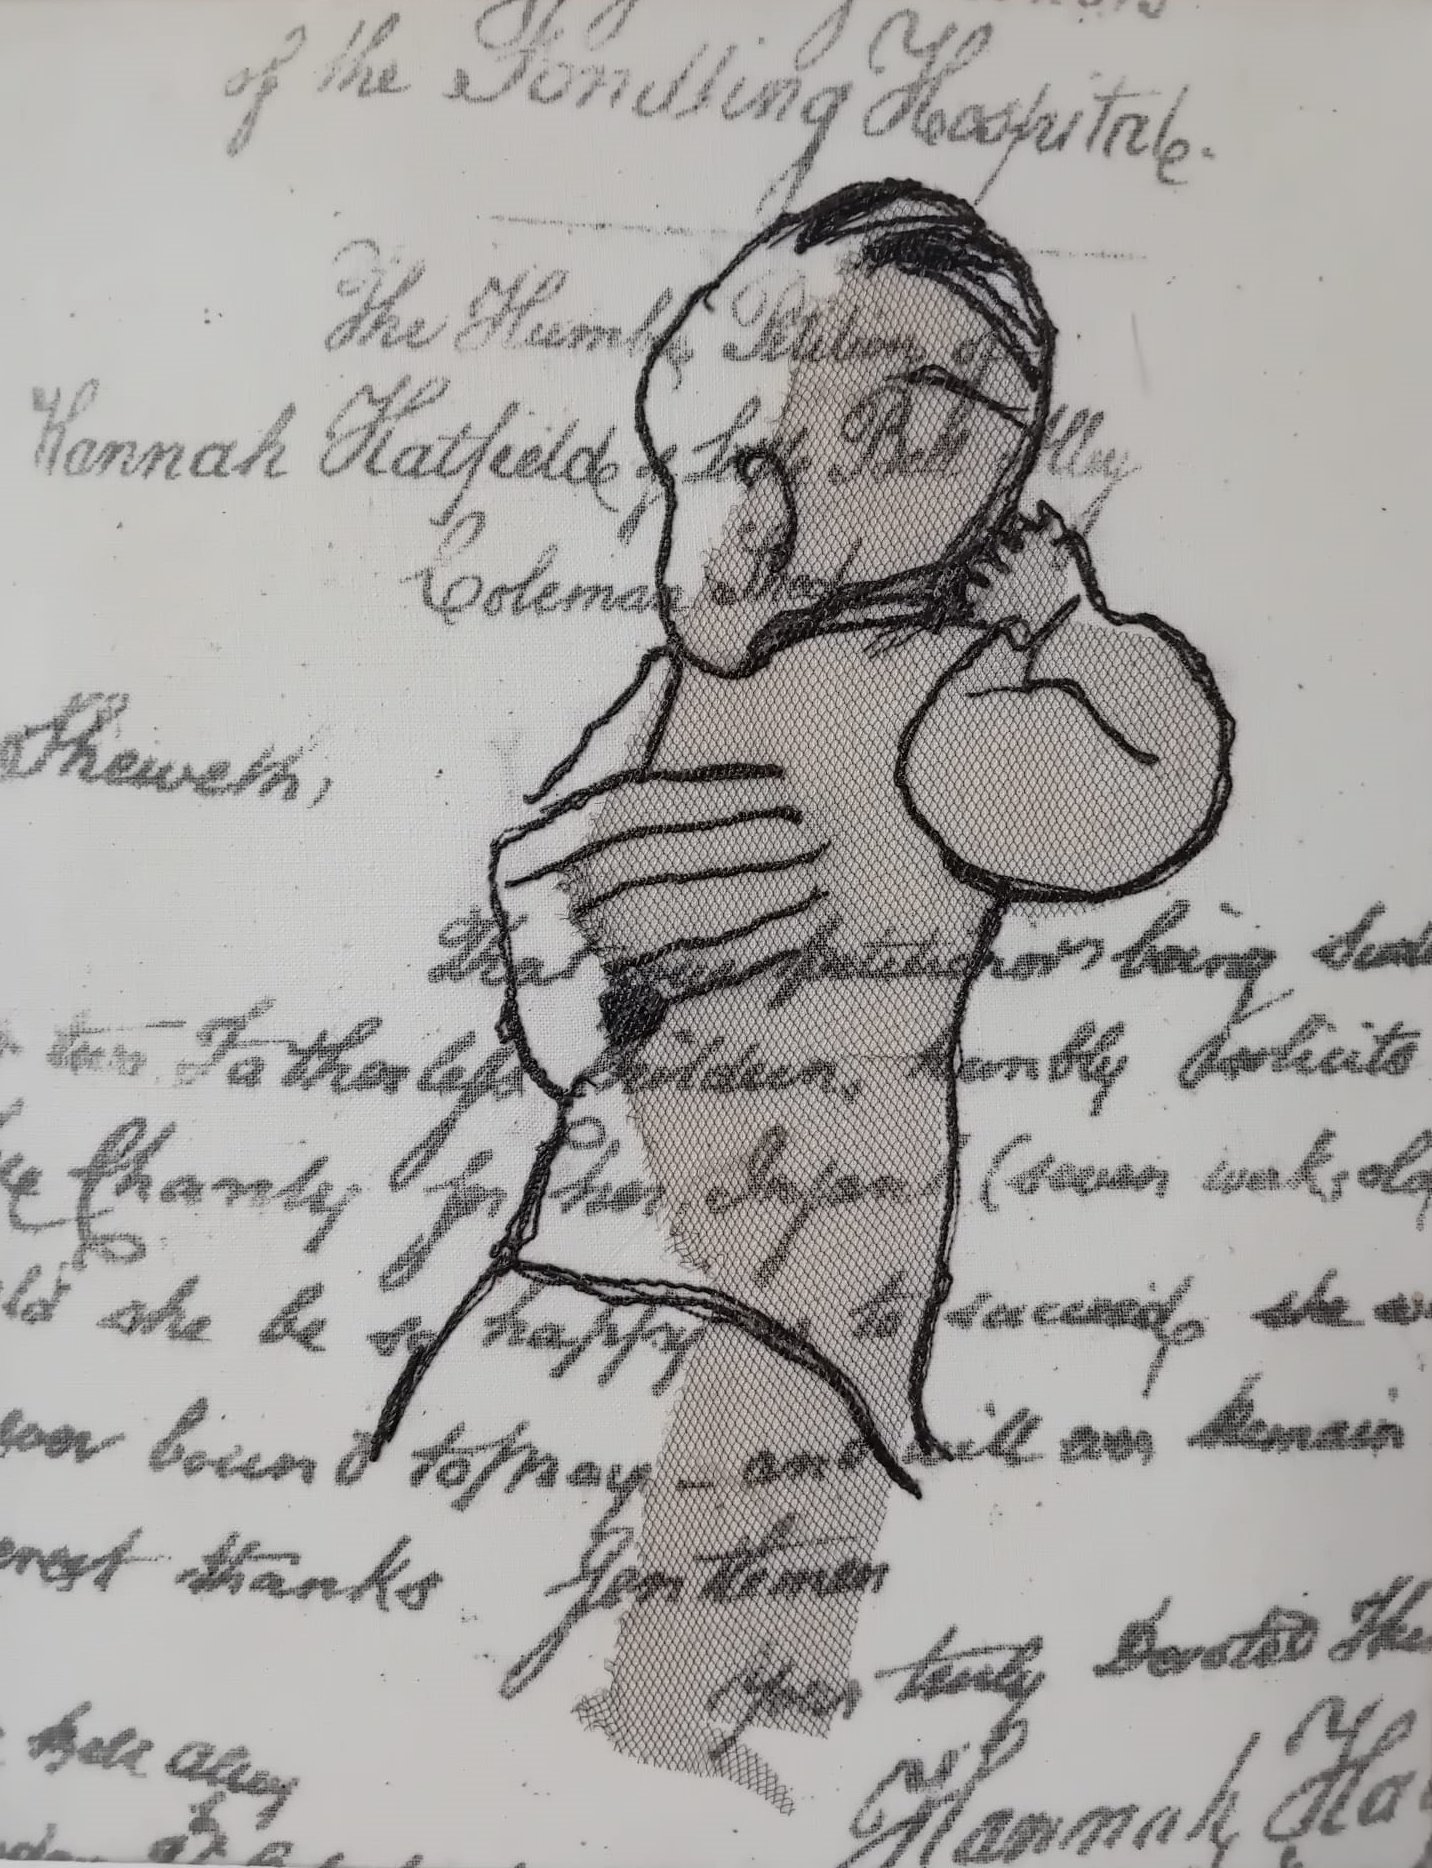 of the Fondling Hospitale.
The Humble Petition of
Hannah Hatfielde of Bell Alley
Coleman Street
Sheweth,
That your petitioners being
Fatherless Children, humbly solicits
Charity for her Infant (seven weeks old
she be so happy to succeed, she
ever bound to pray _ and will ever Remain
thanks Gentlemen
Your truly Devoted
Bell Alley
Hannah Ha